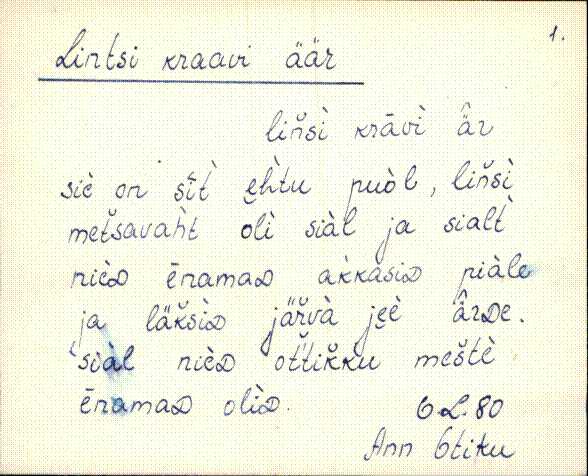 1.
Lintsi kraavi äär
liňsì krāvì är
siè on sīt̀ ęh̀tu puòl, liňsì
metšavah̀t olì siàl ja sialt̀
nièᴅ ēnamaᴅ ak̀kasiᴅ piàle
ja läk̆sìᴅ jär̆và jęè ärᴅe.
siàl nièᴅ ot̆tik̆ku meštè
ēnamaᴅ olìᴅ.
6L. 80
Ann Otiku